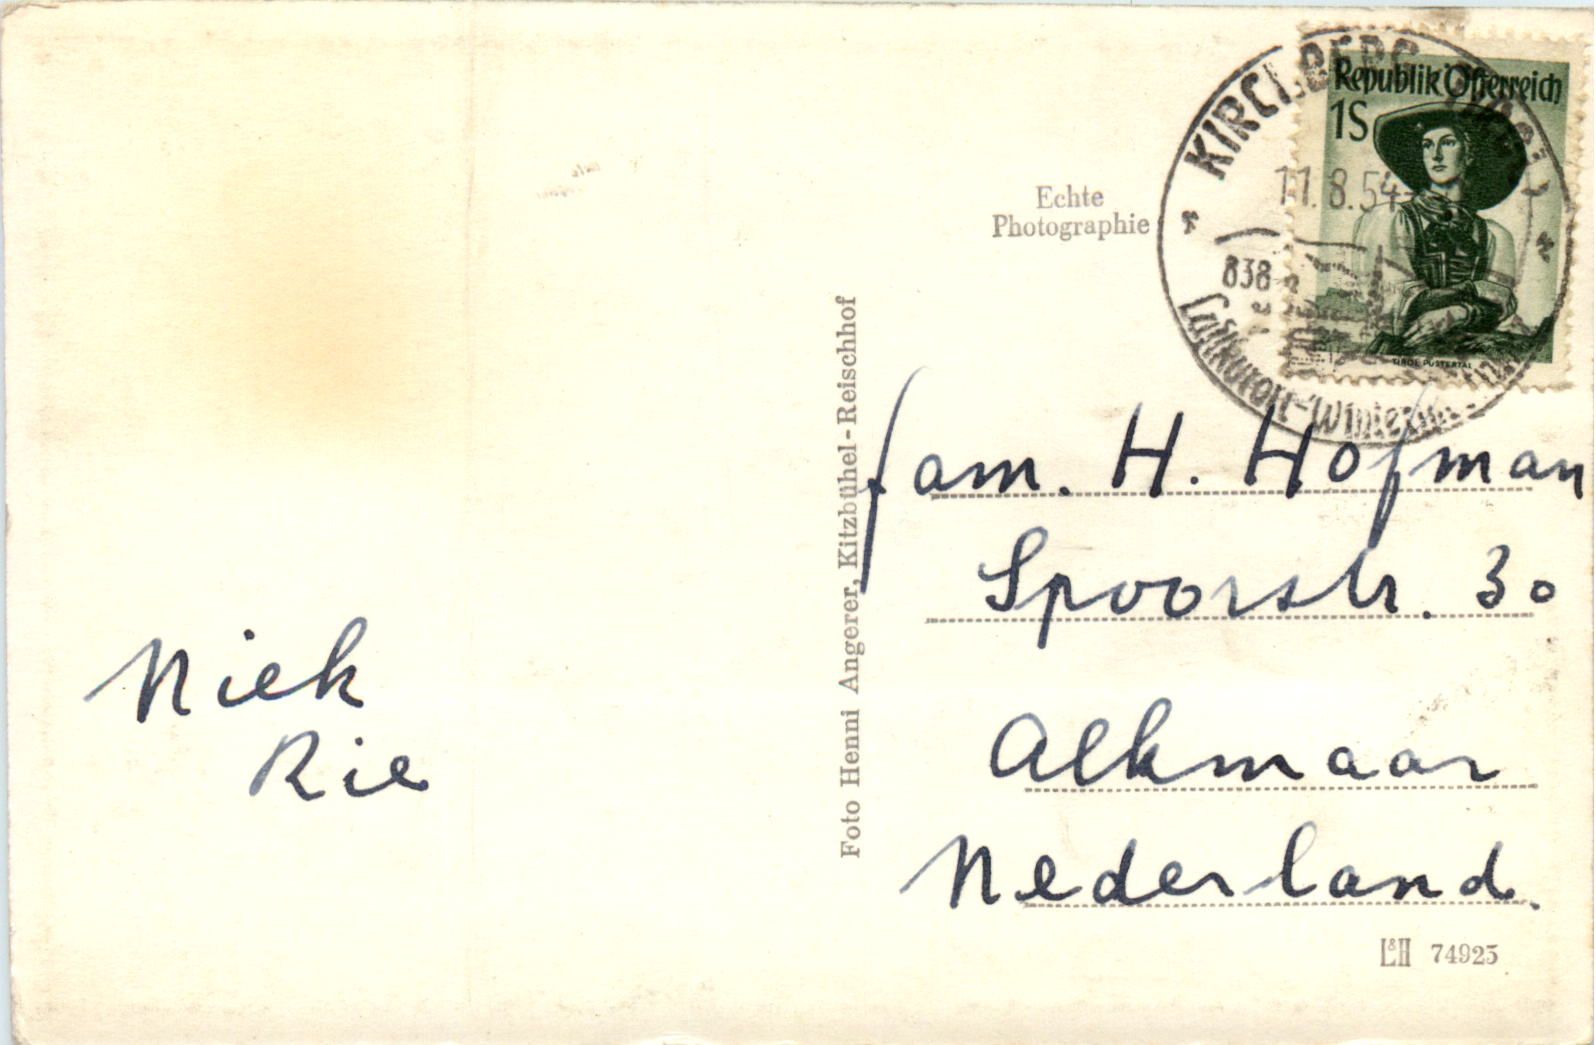 KIRCHBERG (TIROL)
11.8.54
838
Luftkurort-Wintersp
Republik Österreich
1S
TIROL PUSTERTAL
Echte
Photographie
Foto Henni Angerer, Kitzbühel-Reischhof
fam. H. Hofman
Spoorstr. 30
Alkmaar
Nederland.
Niek
Rie
L&H 74925